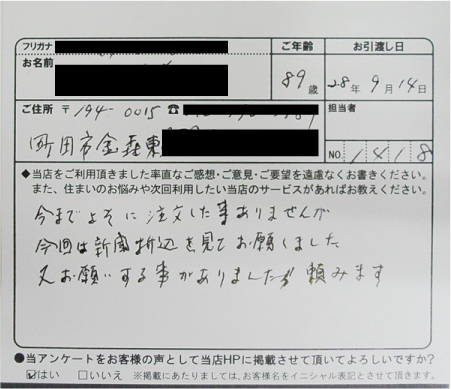 フリガナ
お名前
ご年齢
89歳
お引渡し日
28年9月14日
ご住所 〒194-0015 ☎
町田市金森東
担当者
NO. 1418
◆当店をご利用頂きました率直なご感想・ご意見・ご要望を遠慮なくお書きください。
また、住まいのお悩みや次回利用したい当店のサービスがあればお教えください。
今までよそに注文した事ありませんが
今回は新聞折込を見てお願しました
又お願いする事がありましたら頼みます
●当アンケートをお客様の声として当店HPに掲載させて頂いてよろしいですか?
☑はい □いいえ ※掲載にあたりましては、お客様名をイニシャル表記とさせて頂きます。